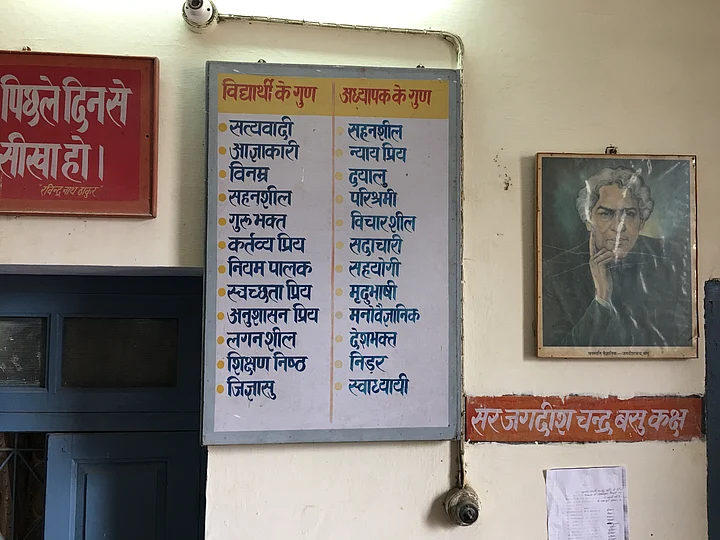 पिछले दिन से
सीखा हो।
"रविन्द्र नाथ ठाकुर"
विद्यार्थी के गुण
सत्यवादी
आज्ञाकारी
विनम्र
सहनशील
गुरू भक्त
कर्तव्य प्रिय
नियम पालक
स्वच्छता प्रिय
अनुशासन प्रिय
लगन शील
शिक्षण निष्ठ
जिज्ञासु
अध्यापक के गुण
सहनशील
न्याय प्रिय
दयालु
परिश्रमी
विचार शील
सदाचारी
सहयोगी
मृदुभाषी
मनोवैज्ञानिक
देशभक्त
निडर
स्वाध्यायी
सर जगदीश चन्द्र बसु कक्ष